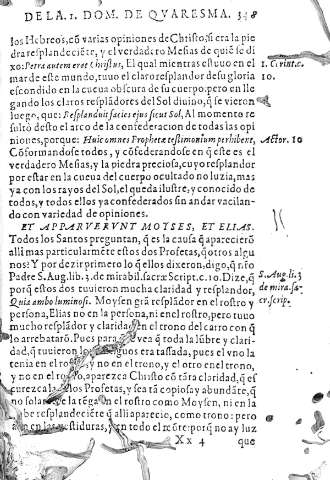 DE LA. I. DOM. DE QVARESMA. 348
los Hebreos, cõ varias opiniones de Christo, si era la pie
dra resplandeciẽte, y el verdadero Mesias de quiẽ se di
xo: Petra autem erat Christus, El qual mientras estuuo en el
mar de este mundo, tuuo el claro resplandor de su gloria
escondido en la cueua obscura de su cuerpo. pero en lle
gando los claros respládores del Sol diuino, q̃ se vieron
luego, que: Resplanduit facies ejus sicut Sol, Al momento re
sultò desto el arco de la confederacion de todas las opi
niones, porque: Huic omnes Prophetæ testimonium perhibent,
Cõformandose todos, y cõfederandose en q̃ este es el
verdadero Mesias, y la piedra preciosa, cuyo resplandor
por estar en la cueua del cuerpo ocultado no luzia, mas
ya con los rayos del Sol, el queda ilustre, y conocido de
todos, y todos ellos ya confederados sin andar vacilan-
do con variedad de opiniones.
ET APPARVERVNT MOYSES, ET ELIAS.
Todos los Santos preguntan, q̃ es la causa q̃ aparecierõ
alli mas particularmẽte estos dos Profetas, q̃ otros algu
nos? Y por dezir primero lo q̃ ellos dixeron, digo, q̃ nr̃o
Padre S. Aug. lib. 3. de mirabil. sacræ Script. c. 10. Dize, q̃
porq̃ estos dos tuuieron mucha claridad y resplandor,
Quia ambo luminosi. Moysen grã resplãdor en el rostro y
persona, Elias no en la persona, ni en el rostro, pero tuuo
mucho resplãdor y claridad en el trono del carro con q̃
lo arrebatarõ. Pues para q̃ se vea q̃ toda la lũbre y clari-
dad, q̃ tuuieron los antiguos era tassada, pues el vno la
tenia en el rostro, y no en el trono, y el otro en el trono,
y no en el rostro, parezca Christo cõ tãta claridad, q̃ es
curezca la de los Profetas, y sea tã copiosa y abundãte, q̃
no solamẽte la tẽga en el rostro como Moysen, ni en la
nube resplandeciẽte q̃ alli aparecio, como trono: pero
aun en las vestiduras, y en todo el mõte: porq̃ no ay luz
Xx 4 que
1. Corint. c.
10.
Actor. 10
S. Aug. li. 3
de mira. sa-
cr. scrip.